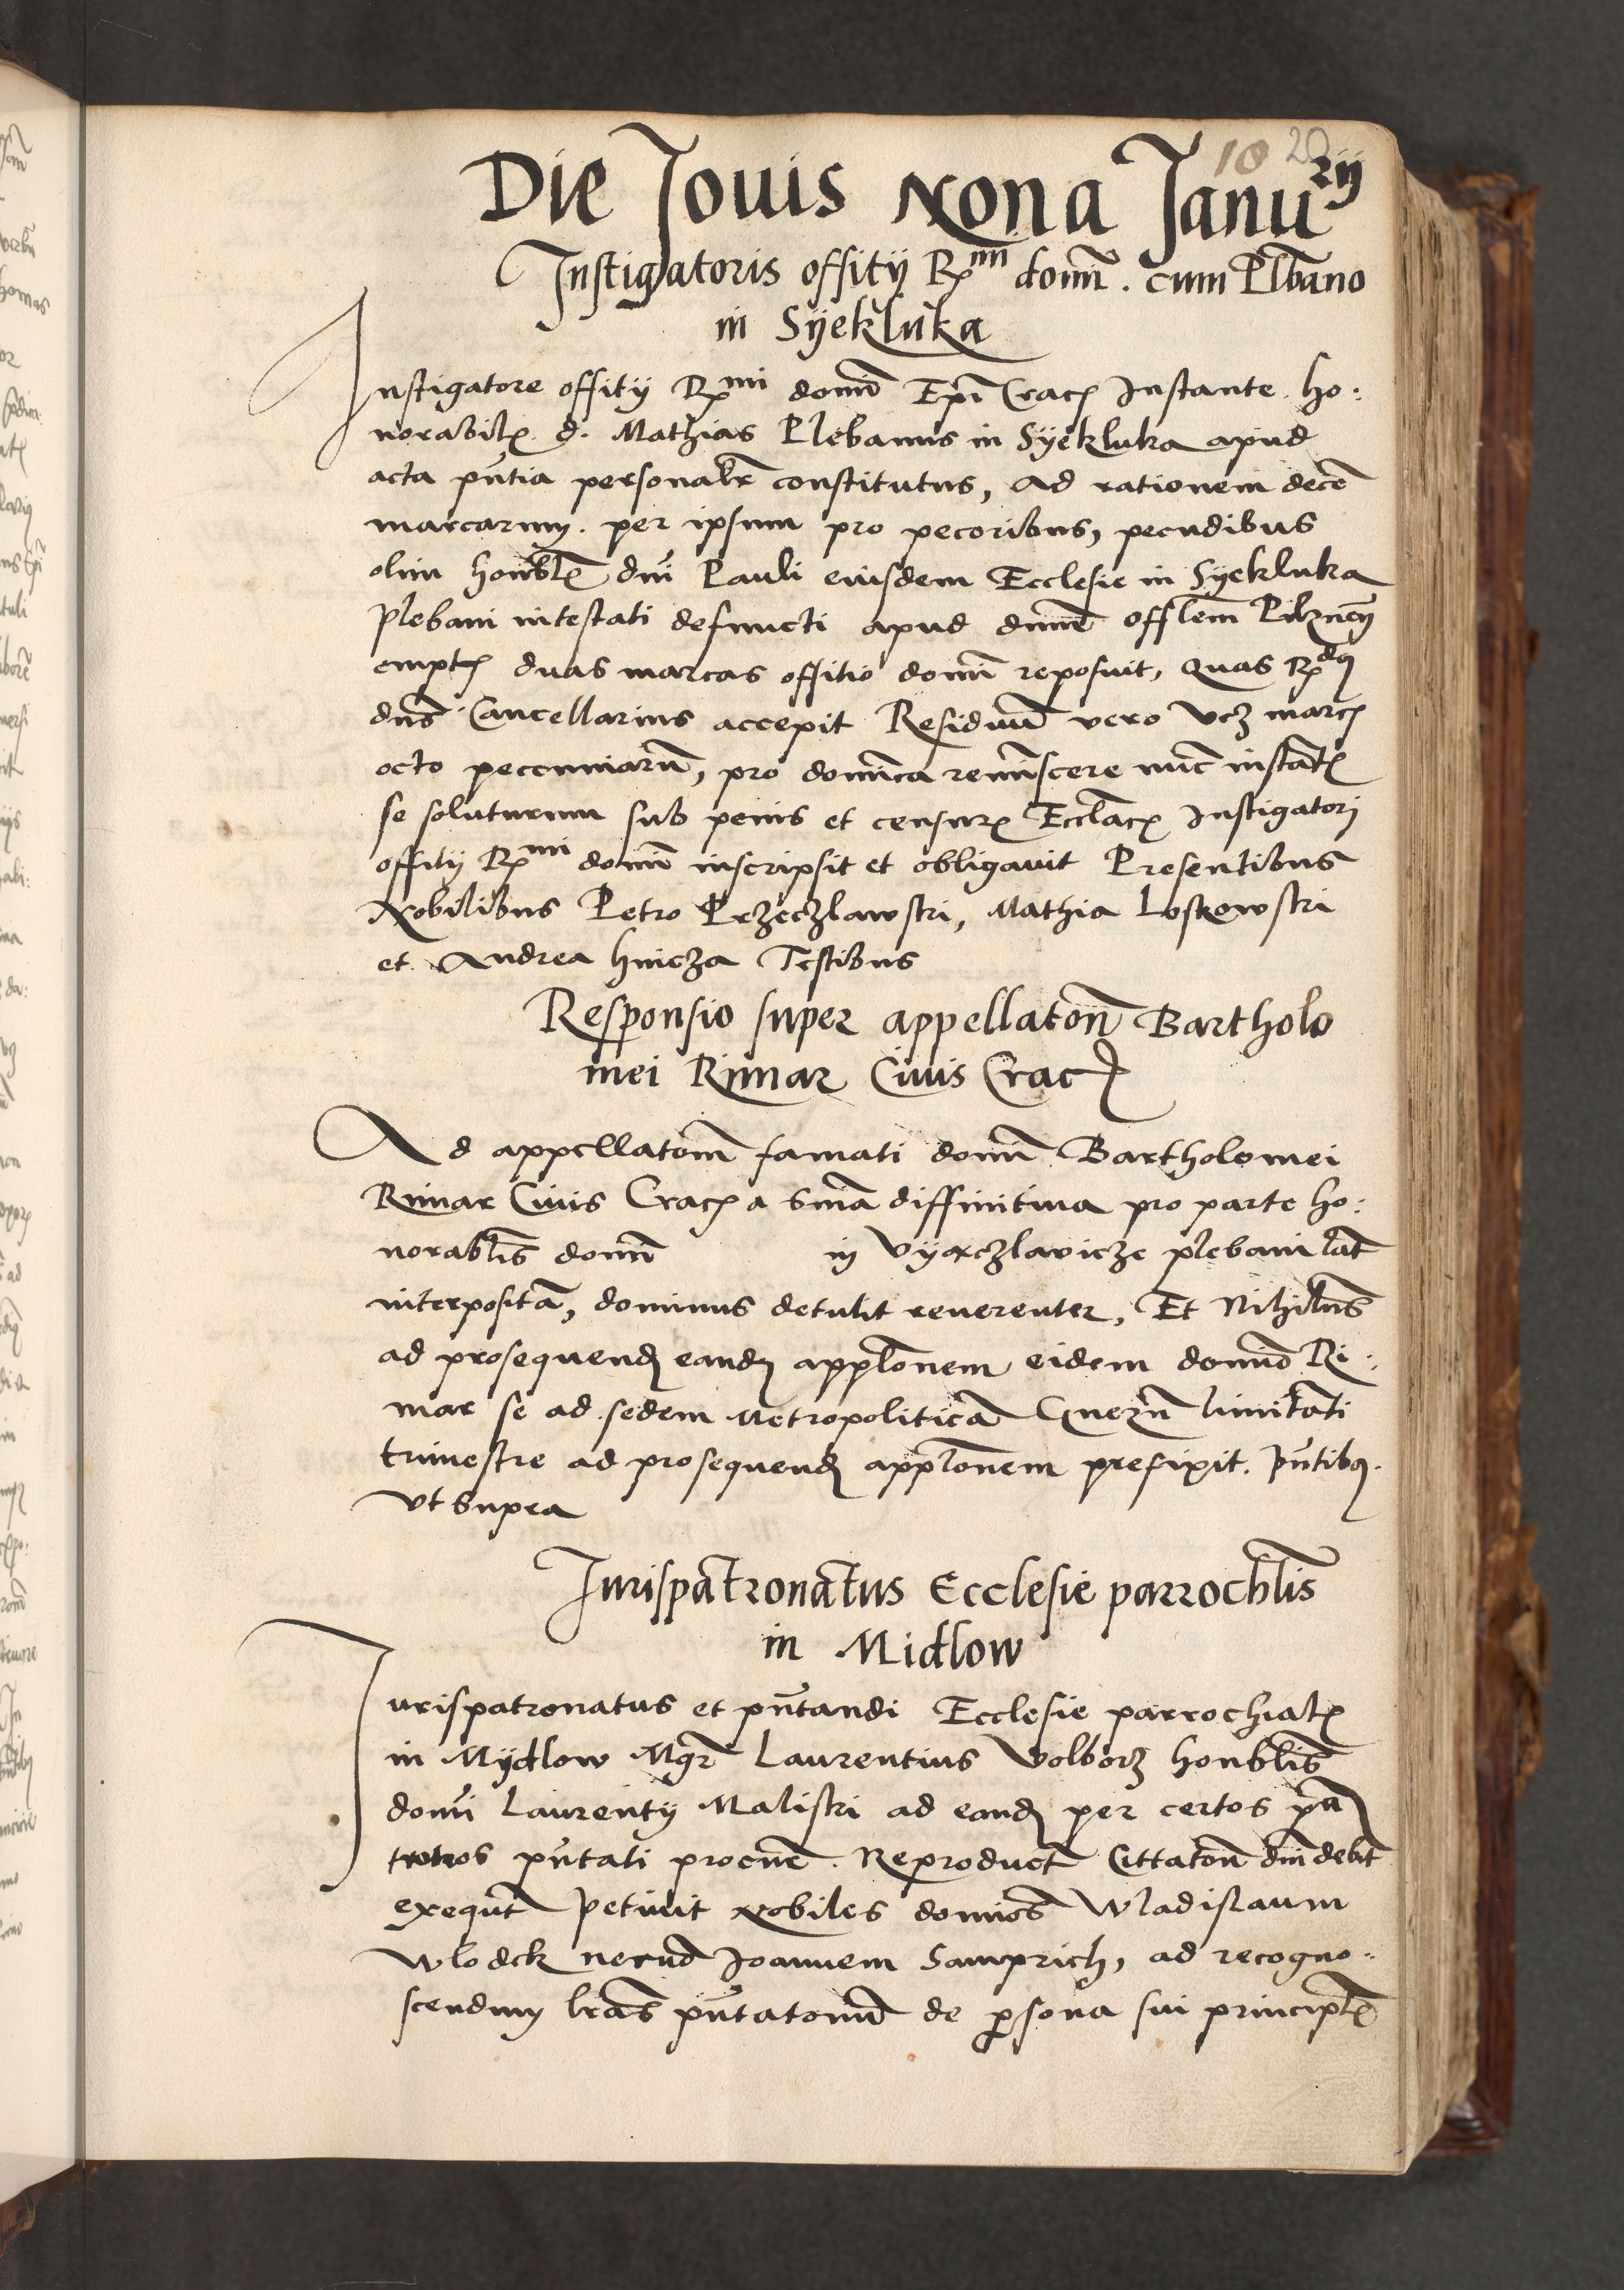 18 20
Die Jouis Nona Januarij
Instigatoris offitij R^mi domi. cum Plbano
in Syekluka
Instigatore offitij R^mi domi Epi Crac Instante ho:
norabil d. Mathias Plebanus in Syekluka apud
acta pntia personalr constitutus, ad rationem dece
marcarum per ipsum pro pecoribus, pecudibus
olim honbl dni Pauli eiusdem Ecclesie in Syekluka
Plebani intestati defuncti apud dnum offlem Pilznen
empt duas marcas offitio domi reposuit, quas R^dus
dns Cancellarius accepit Residuum vero vcz marc
octo pecuniaru, pro domica reminiscere nuc instat
se soluturum sub penis et censur Ecclac Instigatori
offitij R^mi domi inscripsit et obligauit Presentibus
Nobilibus Petro Przeczlawski, Mathia Loskowski
et Andrea hincza Testibus
Responsio super appellaton Bartholo
mei Rimar Ciuis Crac
Ad appellatom famati domi Bartholomei
Rimar Ciuis Crac a snia diffinitiua pro parte ho:
norablis domi in Vyaczlavicze plebani lat
interposita, dominus detulit reuerenter, Et Nihilus
ad prosequend eand applonem eidem domino Ri:
mar se ad sedem Metropolitica Gnezn limitati
trimestre ad prosequend applonem prefixit. pntibus
vt supra
Jurispatronatus Ecclesie parrochlis
in Midlow
Iurispatronatus et pntandi Ecclesie parrochial
in Mydlow Mgr Laurentius Volborz honblis
domi Laurentij Maliski ad eand per certos pa
tronos pntati procne. Reproduct Cittaton dm debit
exequt petiuit Nobiles domios Wladislaum
Wlodek necno Joannem Samprich, ad recogno:
scendum lras pntatonu de psona sui principl